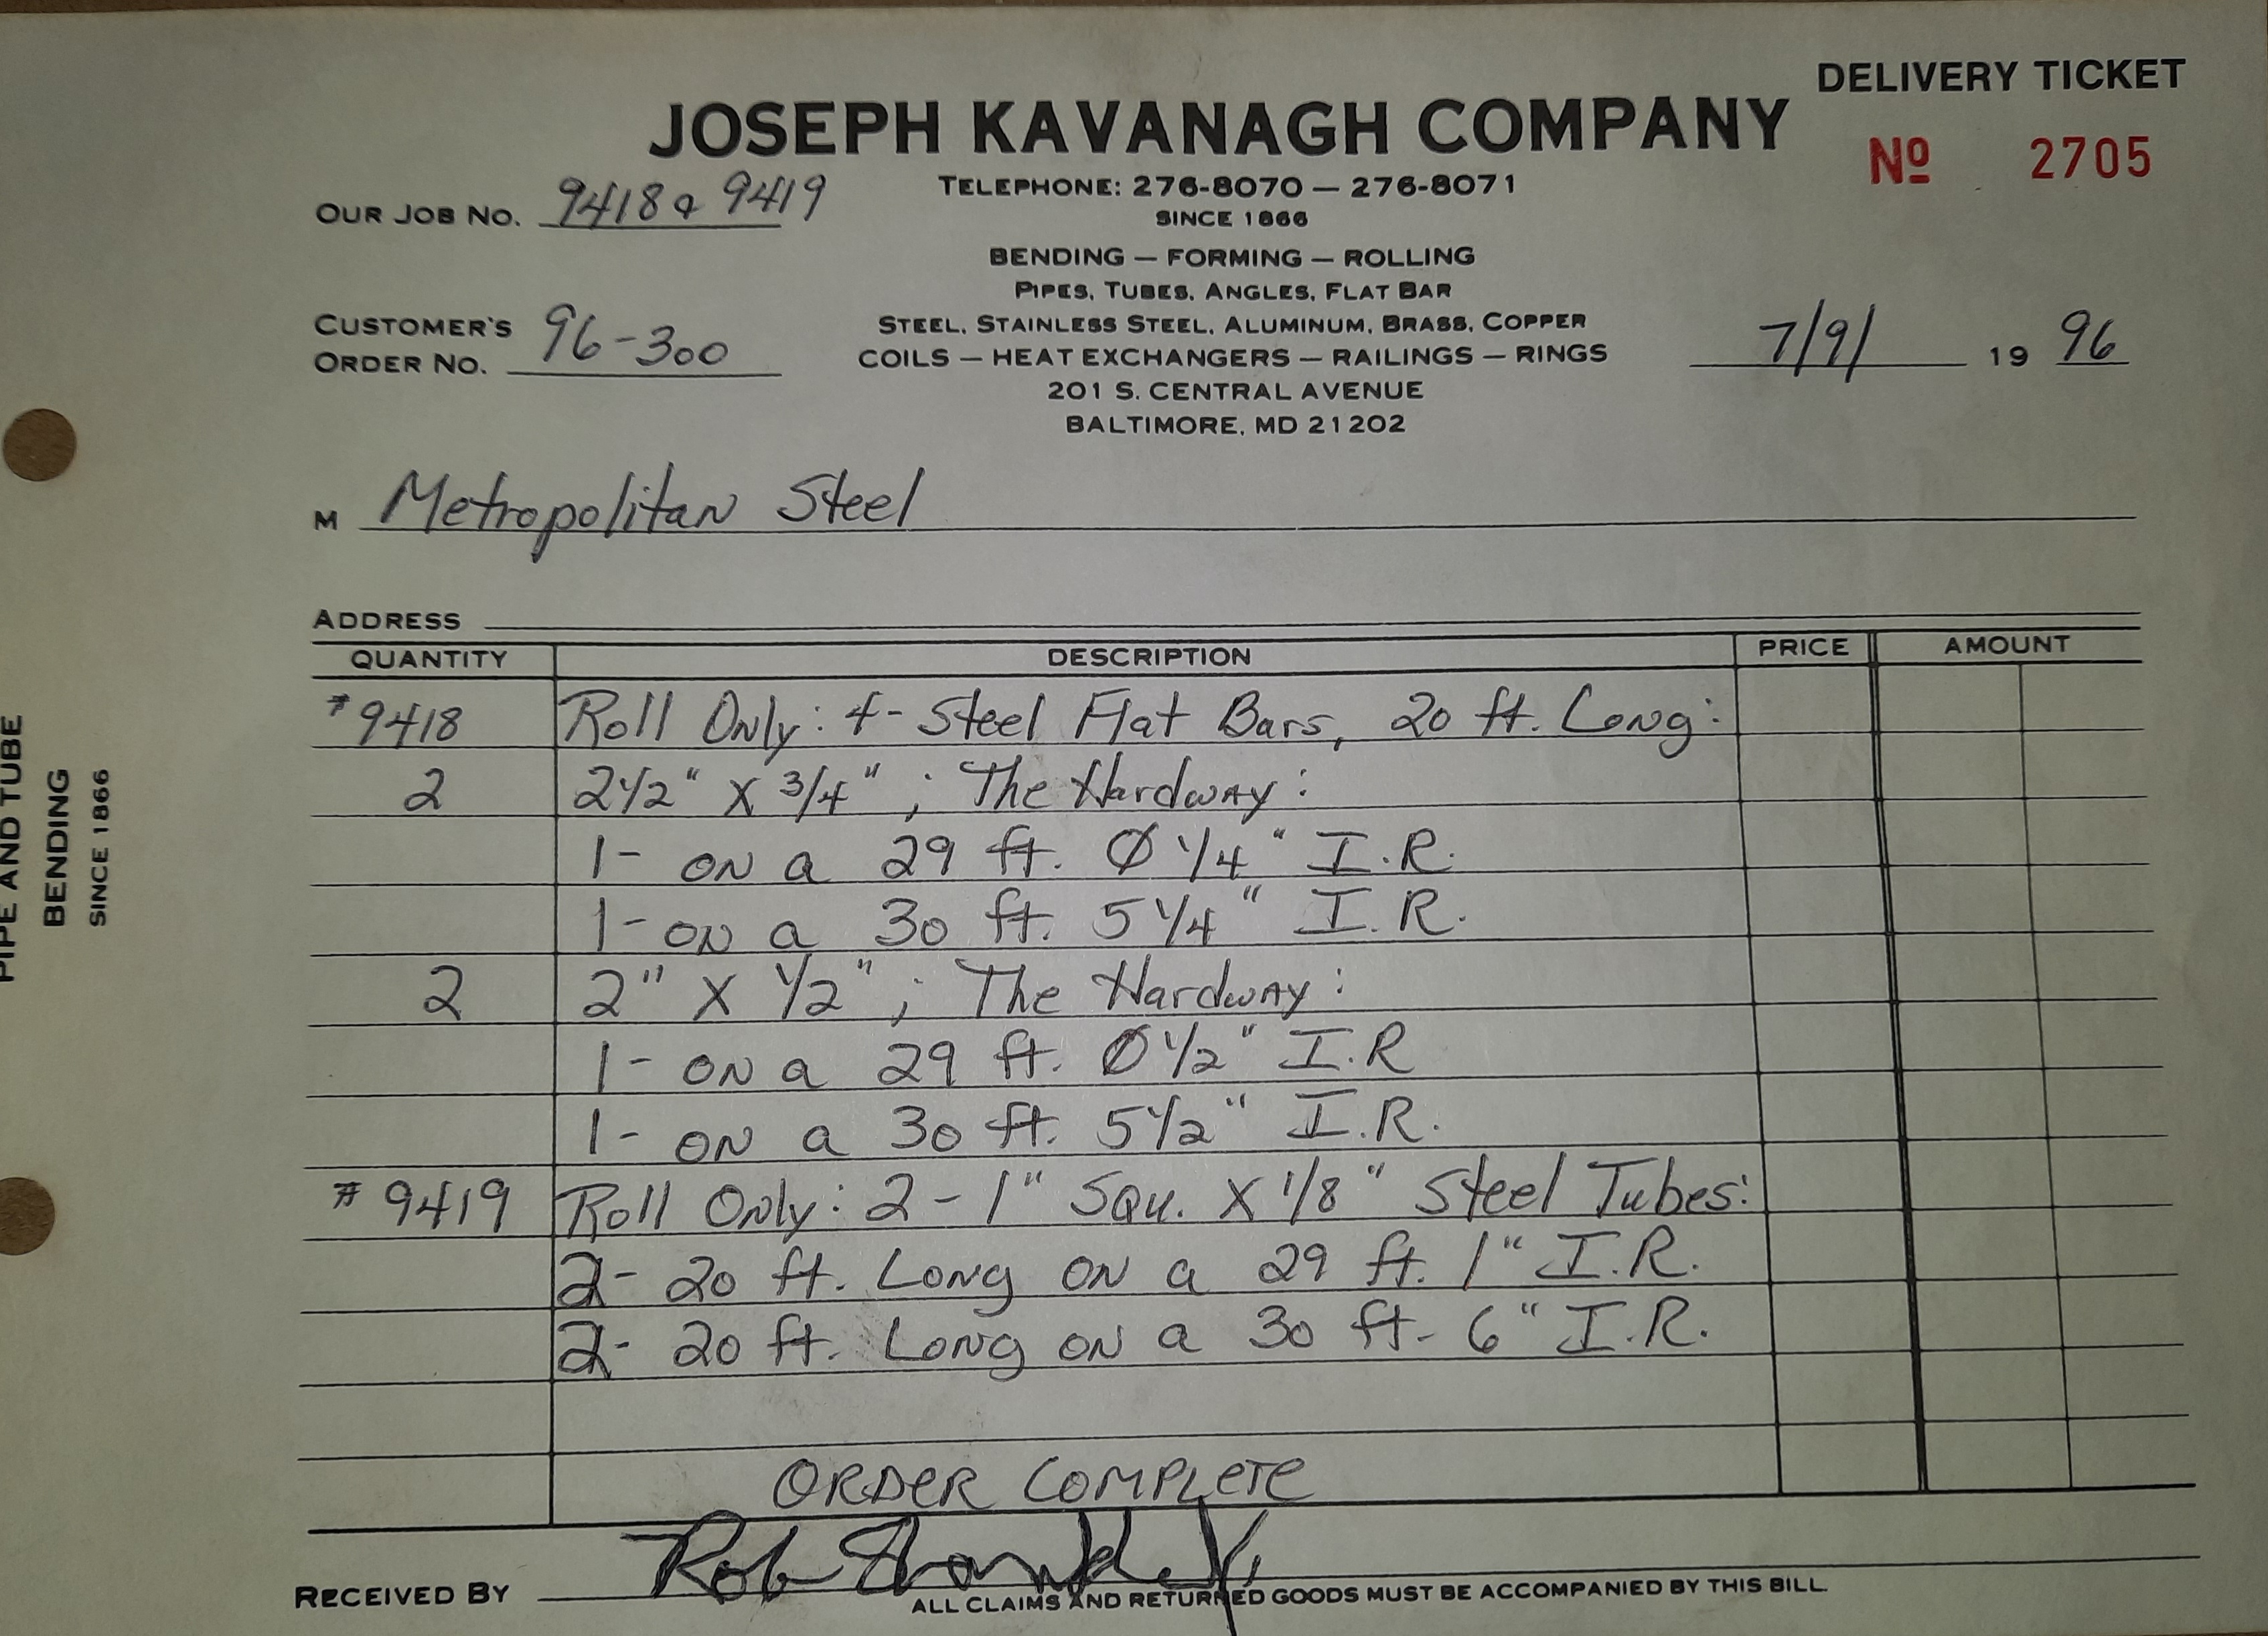 DELIVERY TICKET
JOSEPH KAVANAGH COMPANY
Nº 2705
TELEPHONE: 276-8070 — 276-8071
OUR JOB NO. 9418 & 9419
SINCE 1866
BENDING — FORMING — ROLLING
PIPES, TUBES, ANGLES, FLAT BAR
CUSTOMER'S
ORDER NO. 96-300
STEEL, STAINLESS STEEL, ALUMINUM, BRASS, COPPER
COILS — HEAT EXCHANGERS — RAILINGS — RINGS
7/9/ 19 96
201 S. CENTRAL AVENUE
BALTIMORE, MD 21202
M Metropolitan Steel
ADDRESS
QUANTITY DESCRIPTION PRICE AMOUNT
#9418 Roll Only: 4- Steel Flat Bars, 20 ft. Long:
2 2 1/2" X 3/4" ; The Hardway:
1- on a 29 ft. Ø 1/4" I.R.
1- on a 30 ft. 5 1/4" I.R.
2 2" X 1/2" ; The Hardway:
1- on a 29 ft. Ø 1/2" I.R
1- on a 30 ft. 5 1/2" I.R.
#9419 Roll Only: 2 - 1" Squ. X 1/8" Steel Tubes:
2- 20 ft. Long on a 29 ft. 1" I.R.
2- 20 ft. Long on a 30 ft. 6" I.R.
ORDER COMPLETE
RECEIVED BY Rob
ALL CLAIMS AND RETURNED GOODS MUST BE ACCOMPANIED BY THIS BILL.
PIPE AND TUBE
BENDING
SINCE 1866